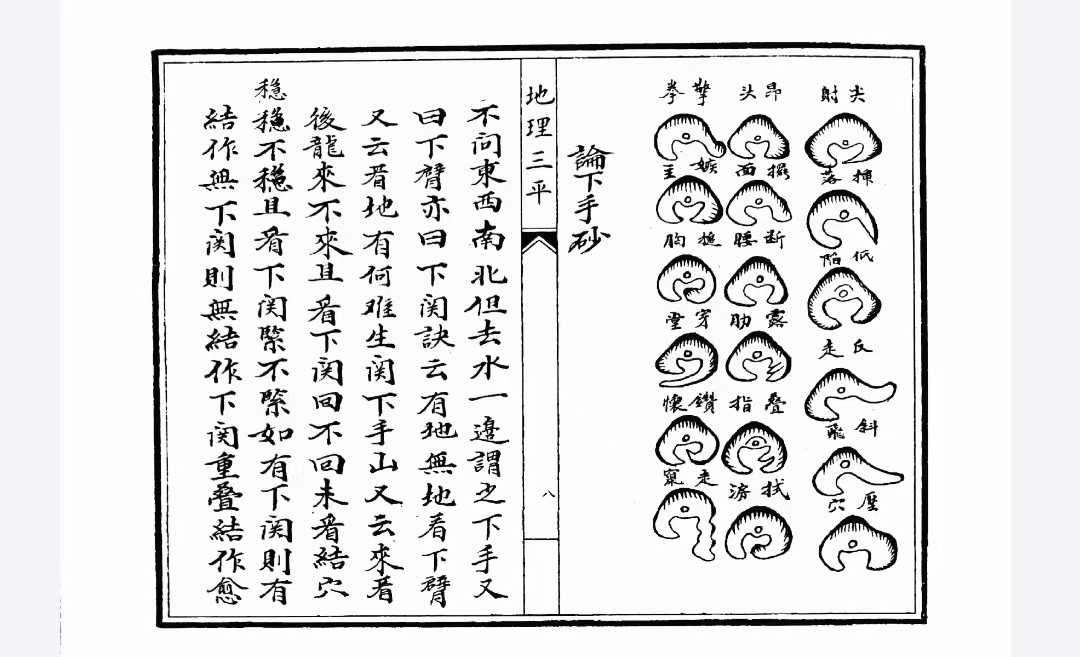 尖射
捶落
低陷
氐走
斜飛
壓穴
昂头
攞面
断腰
露肋
叠指
拭淚
擎拳
嫉主
搥胸
穿堂
鑽懷
走窠
論下手砂
地理三平
八
不问東西南北但去水一邉謂之下手又
曰下臂亦曰下関訣云有地無地看下臂
又云看地有何难生関下手山又云來看
後龍來不來且看下関回不回未看結穴
穏
穏不穏且看下関緊不緊如有下関則有
結作無下関則無結作下関重叠結作愈